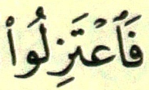 فَٱعۡتَزِلُواْ